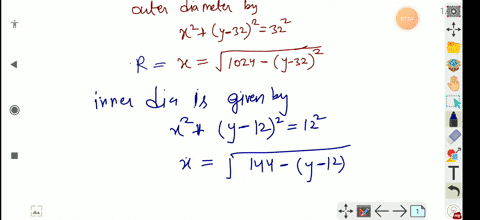 outer diameter by
x²+(y-32)²=32²
R = x = √1024-(y-32)²
inner dia is given by
x²+ (y-12)²=12²
x = √144-(y-12)
1